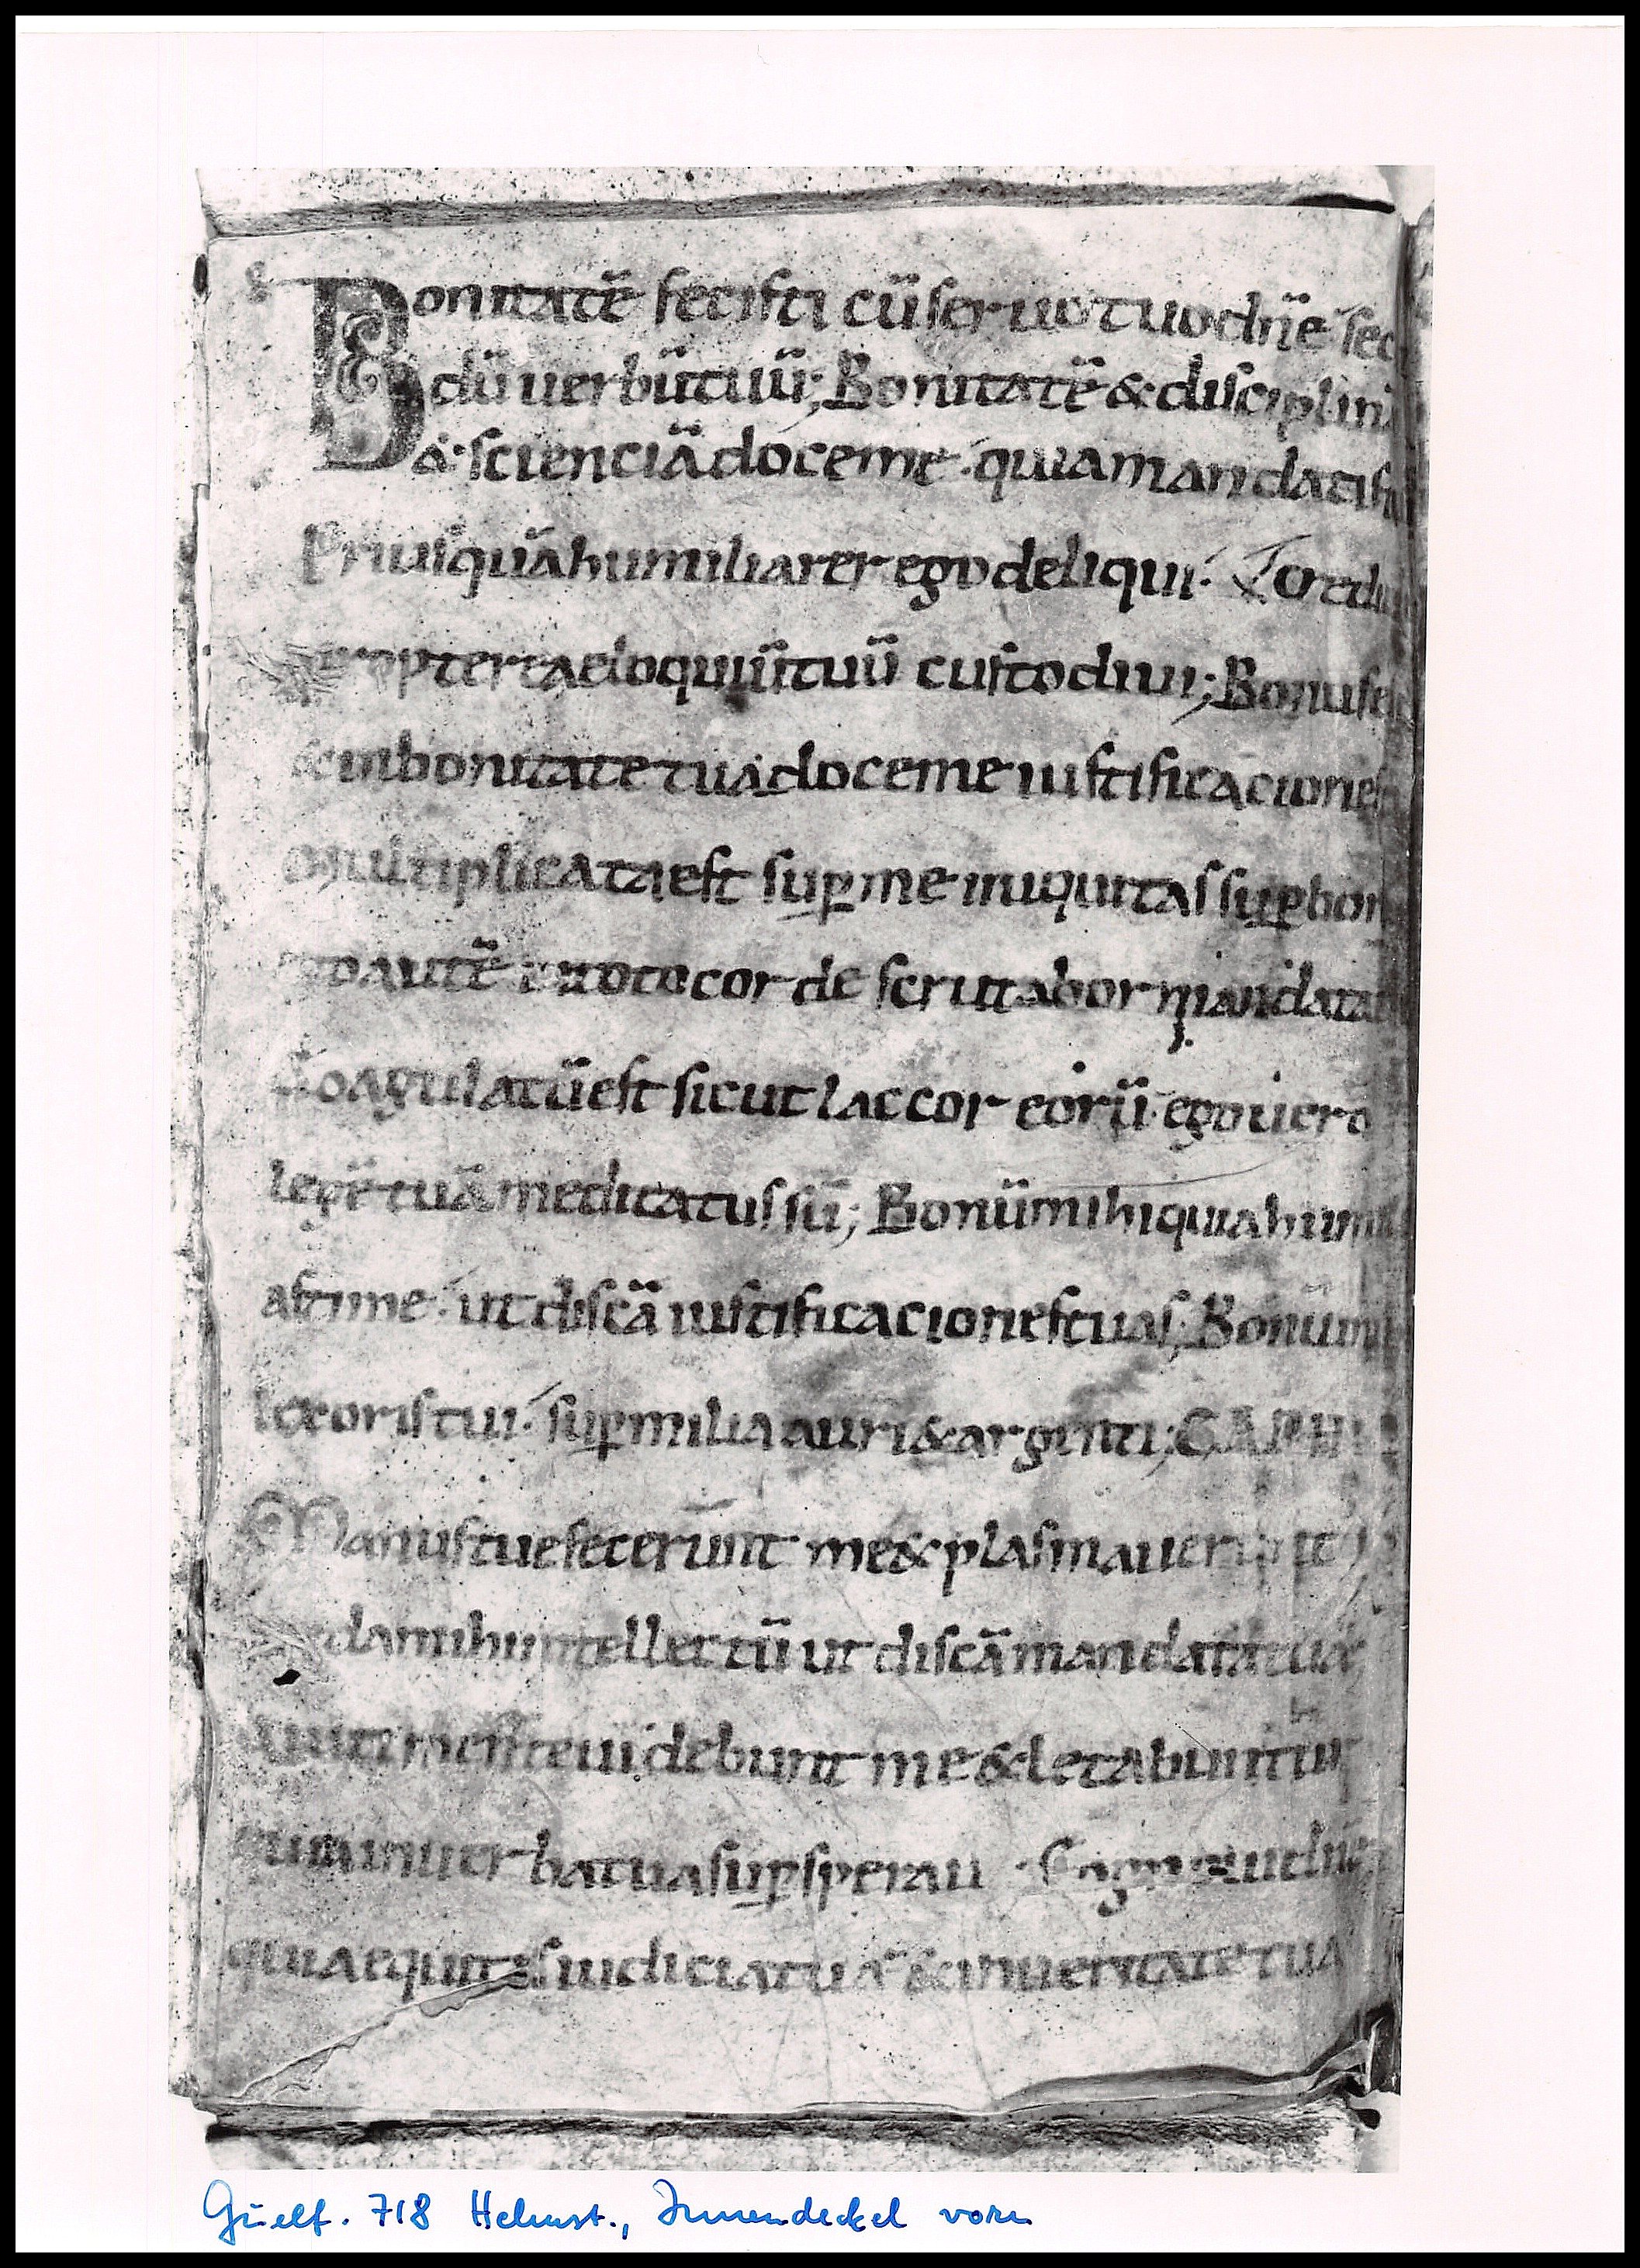 Bonitatē fecisti cū seruo tuo dn̄e sec
dū uerbū tuū; Bonitatē & disciplin
& scienciā doce me quia mandatis
Priusquā humiliarer ego deliqui
propterea eloquiū tuū custodiui; Bonus es
& in bonitate tua doce me iustificaciones
Multiplicata est sup me iniquitas supbor
autē toto corde scrutabor mandata
Coagulatū est sicut lac cor eorū ego uero
legē tuā meditatus sū; Bonū mihi quia humi
asti me ut discā iustificaciones tuas; Bonum
lex oris tui sup milia auri & argenti; CAPH
Manus tue fecerunt me & plasmauerunt
da mihi intellectū ut discā mandata tua
Qui timent te uidebunt me & letabuntur
quia in uerba tua supsperaui Cognoui dn̄e
quia equitas iudicia tua & in ueritate tua
Guelf. 718 Helmst., Innendeckel vorn